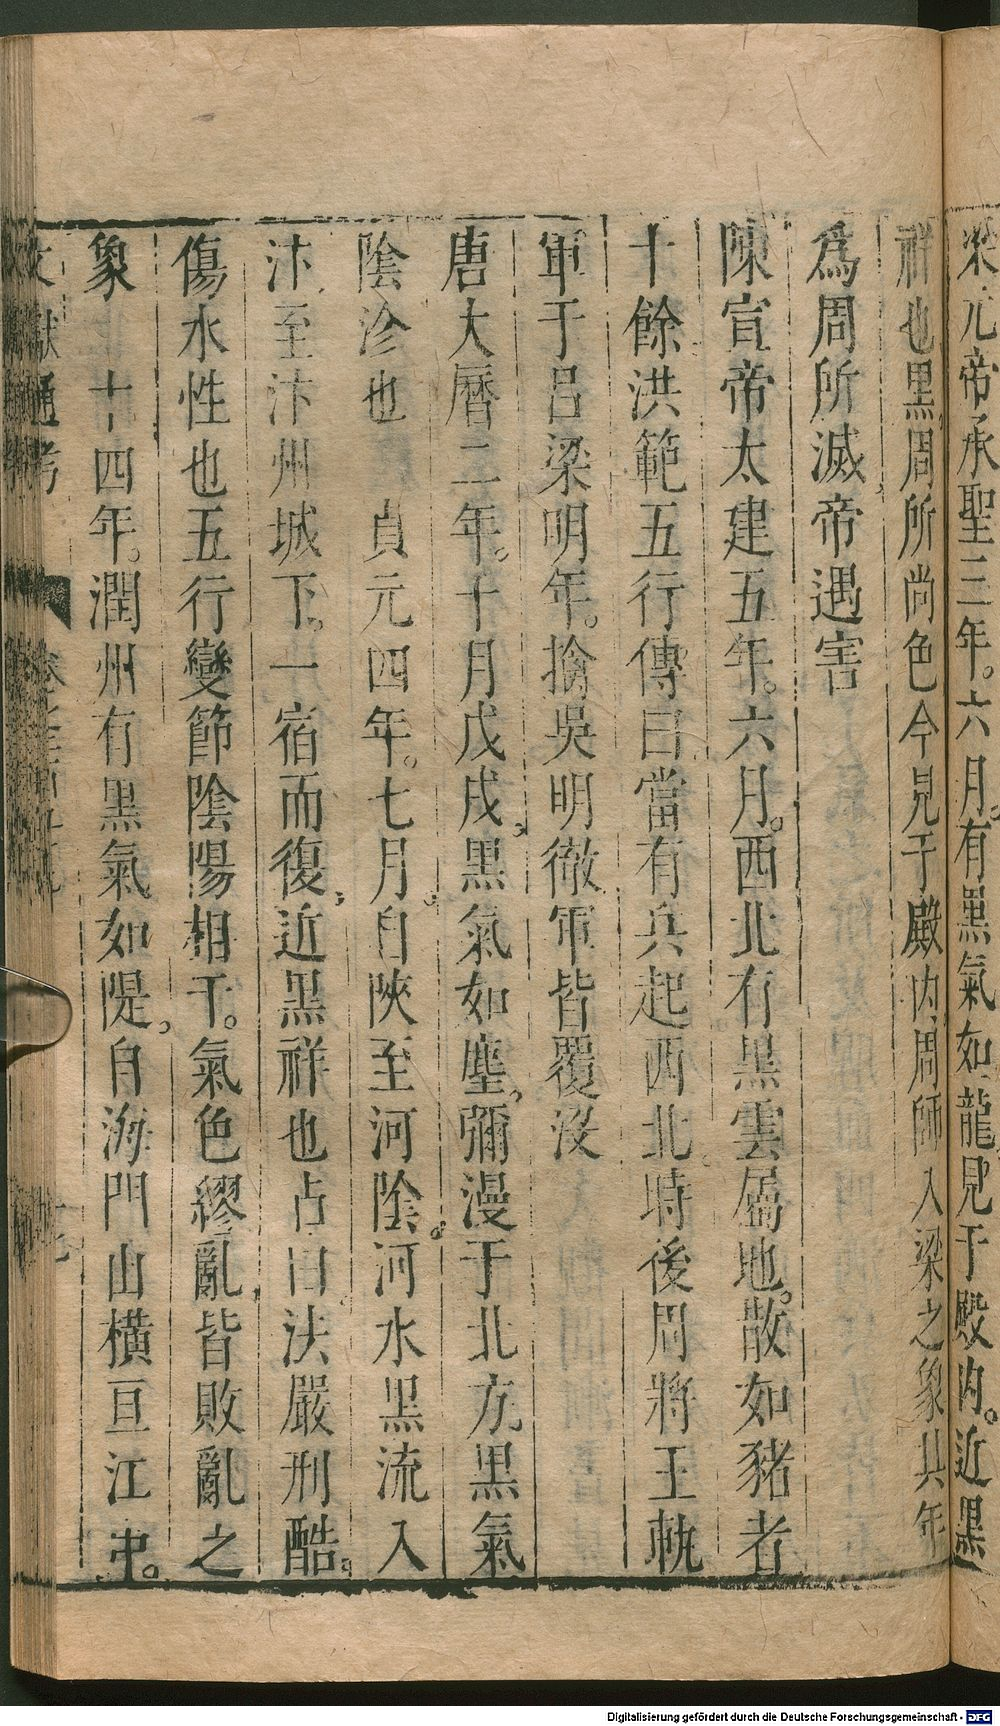 梁元帝承聖三年。六月有黑氣如龍見于殿內。近黑
祥也黑周所尚色今見于殿內周師入梁之象其年
爲周所滅帝遇害
陳宣帝太建五年。六月。西北有黑雲屬地。散如豬者
十餘洪範五行傳曰當有兵起西北時後周將王軌
軍于呂梁明年。擒吳明徹軍皆覆沒
唐大曆二年。十月戊戌黑氣如塵彌漫于北方黑氣
陰沴也 貞元四年。七月自陝至河陰。河水黑流入
汴至汴州城下。一宿而復近黑祥也占曰法嚴刑酷。
傷水性也五行變節陰陽相干。氣色繆亂皆敗亂之
象 十四年。潤州有黑氣如隄。自海門山橫亘江中。
文獻通考
Digitalisierung gefördert durch die Deutsche Forschungsgemeinschaft - DFG